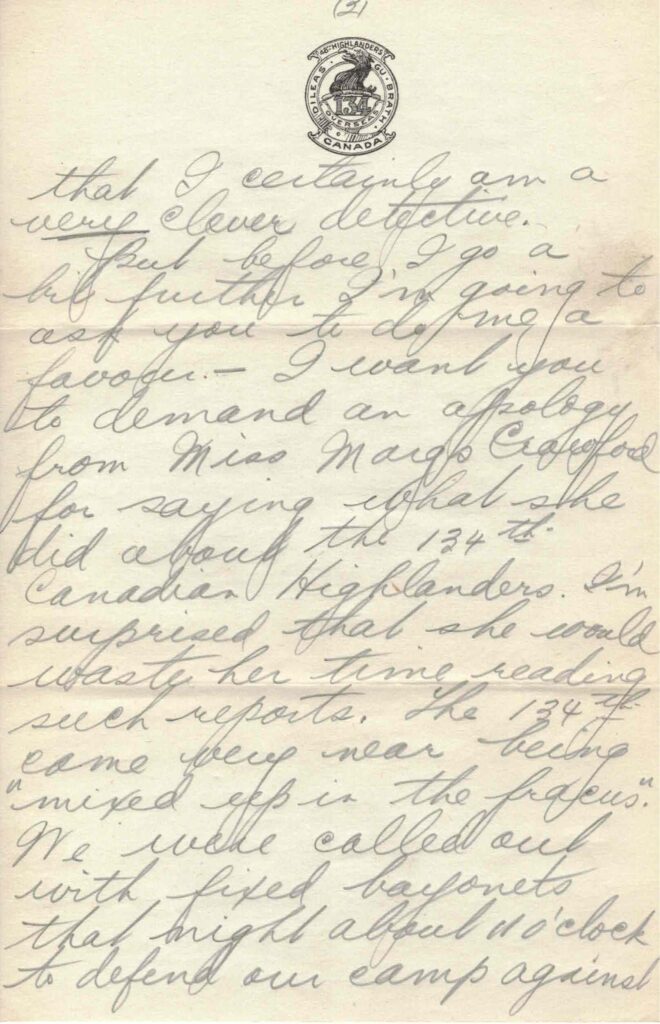 (3)
48TH HIGHLANDERS
DILEAS GU BRATH
134
OVERSEAS
CANADA
that I certainly am a
very clever detective.
But before I go a
bit further I'm going to
ask you to do me a
favour. — I want you
to demand an apology
from Miss Marg Crawford
for saying what she
did about the 134th
Canadian Highlanders. I'm
surprised that she would
waste her time reading
such reports. The 134th
came very near being
"mixed up in the fracus".
We were called out
with fixed bayonets
that night about 11 o'clock
to defend our camp against